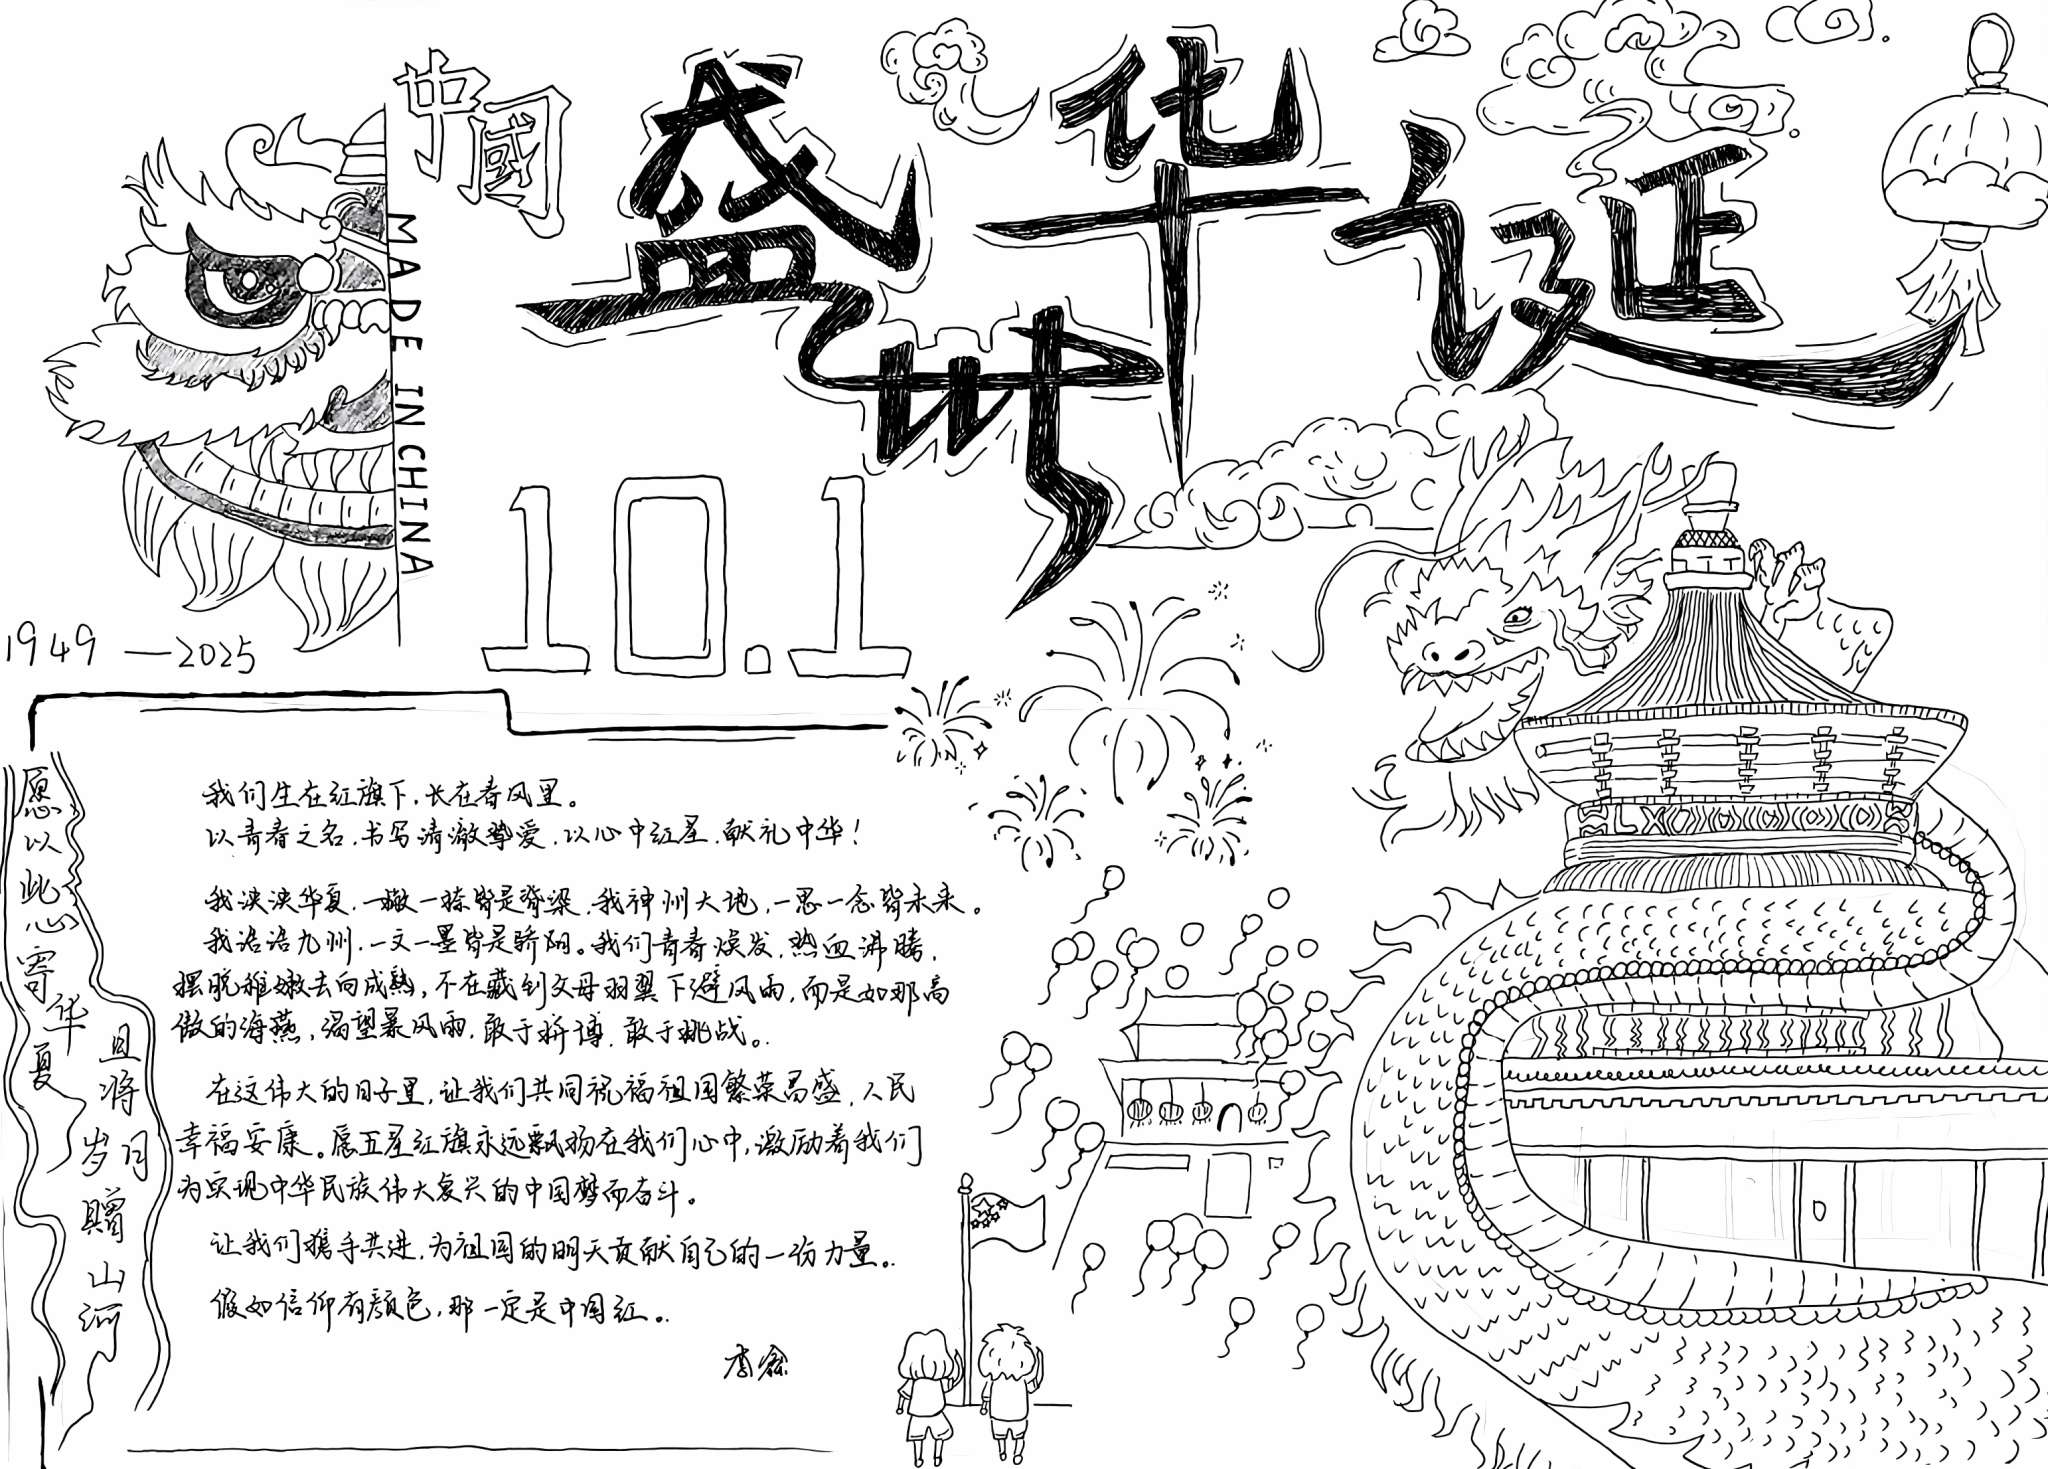 中國
盛世华诞
MADE IN CHINA
10.1
1949—2025
愿以此心寄华夏
且将岁月赠山河
我们生在红旗下，长在春风里。
以青春之名，书写清澈挚爱，以心中红星，献礼中华！
我泱泱华夏，一撇一捺皆是脊梁，我神州大地，一思一念皆未来。
我浩浩九州，一文一墨皆是骄阳。我们青春焕发，热血沸腾，
摆脱稚嫩去向成熟，不在藏到父母羽翼下避风雨，而是如那高
傲的海燕，渴望暴风雨，敢于拼博，敢于挑战。
在这伟大的日子里，让我们共同祝福祖国繁荣昌盛，人民
幸福安康。愿五星红旗永远飘扬在我们心中，激励着我们
为实现中华民族伟大复兴的中国梦而奋斗。
让我们携手共进，为祖国的明天贡献自己的一份力量。
假如信仰有颜色，那一定是中国红。